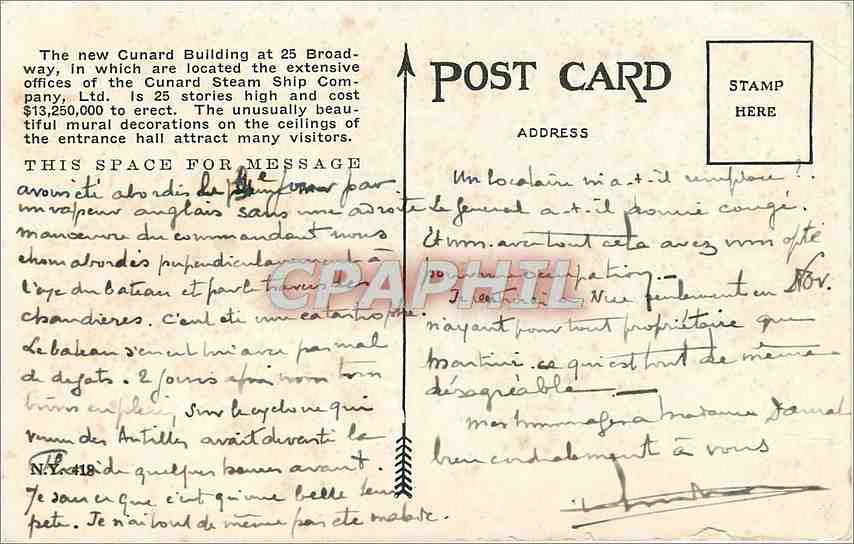 The new Cunard Building at 25 Broad-
way, in which are located the extensive
offices of the Cunard Steam Ship Com-
pany, Ltd. Is 25 stories high and cost
$13,250,000 to erect. The unusually beau-
tiful mural decorations on the ceilings of
the entrance hall attract many visitors.
THIS SPACE FOR MESSAGE
avons été abordés par
un vapeur anglais sans une adroite
manœuvre du commandant nous
étions abordés perpendiculairement à
l'axe du bateau et par le travers des
chaudières. C'eut été une catastrophe.
Le bateau s'en est tiré avec pas mal
de degats. 2 jours après nous
en plein sur le cyclone qui
venu des Antilles avait devasté la
Floride quelques heures avant.
Je sais ce que c'est qu'une belle tem
pete. Je n'ai tout de même pas été malade.
N.Y. 418
POST CARD
ADDRESS
STAMP
HERE
Un locataire m'a-t-il remplacé ?
Le General a-t-il donné congé.
Et vous avec tout cela avez vous opté
pour une occupation.
Je rentrerai à Nice seulement en Nov.
n'ayant pour tout propriétaire que
Martini ce qui est tout de même
désagréable.
Mes hommages à Madame
bien cordialement à vous
CPAPHIL